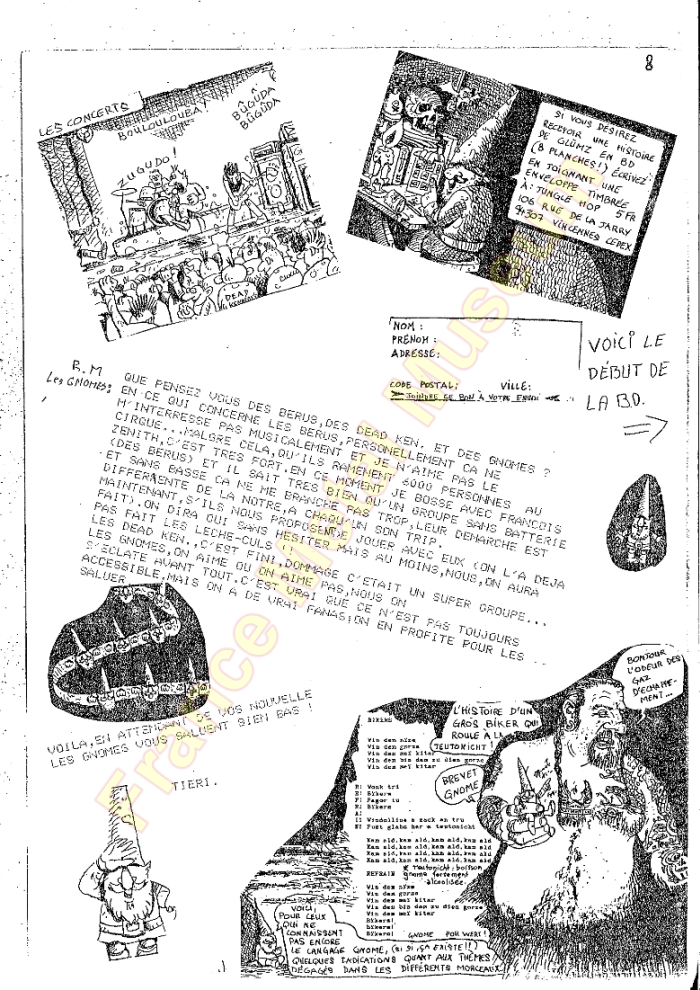 8
LES CONCERTS
BOULOULOUBA!
BÛGÛDA
BÛGÛDA
ZUGUDO!
DEAD
KENNEDYS
SI VOUS DESIREZ
RECEVOIR UNE HISTOIRE
DE GLÜMZ EN BD
(8 PLANCHES!) ÉCRIVEZ
EN JOIGNANT UNE
ENVELOPPE TIMBRÉE
À: JUNGLE HOP 5 FR
106 RUE DE LA JARRY
94307 VINCENNES CEDEX
NOM :
PRÉNOM :
ADRESSE:
CODE POSTAL: VILLE:
JOINDRE CE BON À VOTRE ENVOI
VOICI LE
DÉBUT DE
LA B.D.
R.M QUE PENSEZ VOUS DES BERUS,DES DEAD KEN. ET DES GNOMES ?
Les GNOMES: EN CE QUI CONCERNE LES BERUS,PERSONELLEMENT CA NE
M'INTERRESSE PAS MUSICALEMENT ET JE N'AIME PAS LE
CIRQUE...MALGRE CELA,QU'ILS RAMENENT 6000 PERSONNES AU
ZENITH,C'EST TRES FORT.EN CE MOMENT JE BOSSE AVEC FRANCOIS
(DES BERUS) ET IL SAIT TRES BIEN QU'UN GROUPE SANS BATTERIE
ET SANS BASSE CA NE ME BRANCHE PAS TROP,LEUR DEMARCHE EST
DIFFERENTE DE LA NOTRE,A CHAQU'UN SON TRIP.
MAINTENANT,S'ILS NOUS PROPOSENT DE JOUER AVEC EUX (ON L'A DEJA
FAIT).ON DIRA OUI SANS HESITER MAIS AU MOINS,NOUS,ON AURA
PAS FAIT LES LECHE-CULS !!
LES DEAD KEN.,C'EST FINI,DOMMAGE C'ETAIT UN SUPER GROUPE...
LES GNOMES,ON AIME OU ON AIME PAS,NOUS ON
S'ECLATE AVANT TOUT.C'EST VRAI QUE CE N'EST PAS TOUJOURS
ACCESSIBLE,MAIS ON A DE VRAI FANAS;ON EN PROFITE POUR LES ..
SALUER
VOILA,EN ATTENDANT DE VOS NOUVELLE
LES GNOMES VOUS SALUENT BIEN BAS !
TIERI.
BONJOUR
L'ODEUR DES
GAZ
D'ÉCHAPPE-
MENT...
L'HISTOIRE D'UN
GROS BIKER QUI
ROULE À LA
TEUTONICHT!
BREVET
GNOME
BIKERS
Vin dem nïze
Vin dem gorze
Vin dem meï kitar
Vin dem bin dam zu dien gorze
Vin dem meï kitar
R: Vonk tri
E: Bikers
F: Fagor tu
R: Bikers
A:
I: Vindolline a zack en tru
N: Fort glabs her a teutonicht
Kam ald,kam ald,kam ald,kam ald
Kam ald,kam ald,kam ald,kam ald
Kam ald,kam ald,kam ald,kam ald
Kam ald,kam ald,kam ald,kam ald
* teutonicht: boisson
REFRAIN gnome fortement
alcoolisée
Vin dem nïze
Vin dem gorze
Vin dem meï kitar
Vin dem bin dam zu dien gorze
Vin dem meï kitar
Bikers!
bikers!
Bikers! GNOME POU WERK!
VOICI,
POUR CEUX
QUI NE
CONNAISSENT
PAS ENCORE
LE LANGAGE GNOME, (SI SI, ÇA EXISTE!!)
QUELQUES INDICATIONS QUANT AUX THÈMES
DÉGAGÉS DANS LES DIFFÉRENTS MORCEAUX
France Metal Museum